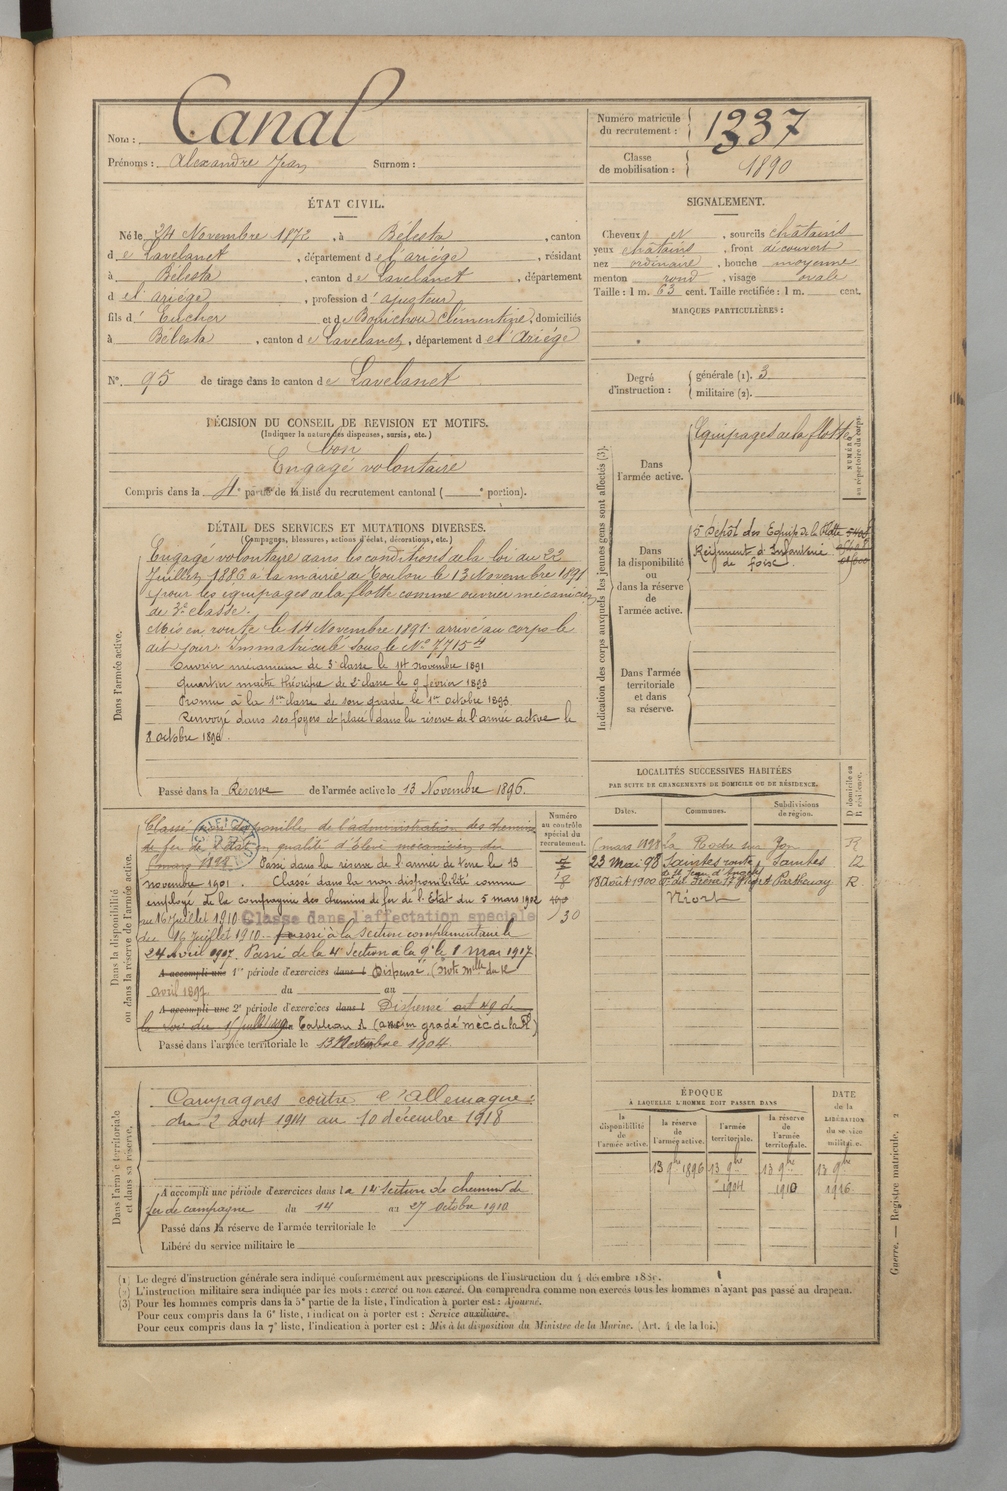 Nom : Canal
Prénoms : Alexandre Jean Surnom :
Numéro matricule du recrutement : 1337
Classe de mobilisation : 1890
ÉTAT CIVIL.
Né le 24 Novembre 1872, à Bélesta, canton
de Lavelanet, département de l'ariége, résidant
à Bélesta, canton de Lavelanet, département
de l'ariége, profession d'ajusteur
fils d'Eucher et de Bouichou Clémentine, domiciliés
à Bélesta, canton de Lavelanet, département de l'Ariége
N° 95 de tirage dans le canton de Lavelanet
SIGNALEMENT.
Cheveux et, sourcils châtains
yeux châtains, front découvert
nez ordinaire, bouche moyenne
menton rond, visage ovale
Taille : 1 m. 63 cent. Taille rectifiée : 1 m. cent.
MARQUES PARTICULIÈRES :
Degré d'instruction : générale (1). 3
militaire (2).
DÉCISION DU CONSEIL DE REVISION ET MOTIFS.
(Indiquer la nature des dispenses, sursis, etc.)
bon
Engagé volontaire
Compris dans la 4e partie de la liste du recrutement cantonal ( e portion).
DÉTAIL DES SERVICES ET MUTATIONS DIVERSES.
(Campagnes, blessures, actions d'éclat, décorations, etc.)
Dans l'armée active.
Engagé volontaire dans les conditions de la loi du 22
Juillet 1886 à la mairie de Toulon le 13 Novembre 1891
pour les équipages de la flotte comme ouvrier mécanicien
de 3e classe.
Mis en route le 14 Novembre 1891. arrivé au corps le
dit jour. Immatriculé sous le No 7715-4
Ouvrier mécanicien de 3e classe le 14 novembre 1891
Quartier maître théorique de 2e classe le 9 février 1893
Promu à la 1ère classe de son grade le 1er octobre 1893
Renvoyé dans ses foyers et placé dans la réserve de l'armée active le
8 octobre 1896.
Passé dans la Réserve de l'armée active le 13 Novembre 1896.
Indication des corps auxquels les jeunes gens sont affectés (3).
NUMÉRO au répertoire du corps.
Dans l'armée active.
Equipages de la flotte
Dans la disponibilité ou dans la réserve de l'armée active.
5 Dépôt des Equip. de la Flotte
Régiment d'Infanterie
de foix.
Dans l'armée territoriale et dans sa réserve.
Dans la disponibilité ou dans la réserve de l'armée active.
Numéro au contrôle spécial du recrutement.
Classé non disponible de l'administration des chemins
de fer de l'Etat en qualité d'Elève mecanicien du
1 mars 1898 Passé dans la réserve de l'armée de terre le 13
novembre 1901. Classé dans la non disponibilité comme
employé de la compagnie des chemins de fer de l'Etat du 5 mars 1902
au 16 juillet 1910 Classé dans l'affectation spéciale
du 16 juillet 1910. passé à la section complémentaire le
24 Avril 1907. Passé de la 4e Section à la 9e le 1 mai 1917
30
A accompli une 1re période d'exercices dans l Dispensé (Note Mlle du 12
avril 1897 du au
A accompli une 2e période d'exercices dans l Dispensé art 49 de
la Loi du 15 juillet 1889 Tableau A (ancien gradé méc. de la Fl)
Passé dans l'armée territoriale le 13 Novembre 1904.
LOCALITÉS SUCCESSIVES HABITÉES
PAR SUITE DE CHANGEMENTS DE DOMICILE OU DE RÉSIDENCE.
Dates. Communes. Subdivisions de région. D domicile ou R résidence.
1 mars 1898 La Roche sur Yon R
22 Mai 98 Saintes route de St Jean d'Angely Saintes R
18 Août 1900 Parthenay R
Niort
Dans l'armée territoriale et dans sa réserve.
Campagnes contre l'Allemagne :
du 2 aout 1914 au 10 décembre 1918
A accompli une période d'exercices dans la 14 Section de chemins de
fer de campagne du 14 au 27 octobre 1910
Passé dans la réserve de l'armée territoriale le
Libéré du service militaire le
ÉPOQUE
À LAQUELLE L'HOMME DOIT PASSER DANS
DATE de la LIBÉRATION du service militaire.
la disponibilité de l'armée active. la réserve de l'armée active. l'armée territoriale. la réserve de l'armée territoriale.
13 9bre 1896 13 9bre 1904 13 9bre 1910 13 9bre 1916
(1) Le degré d'instruction générale sera indiqué conformément aux prescriptions de l'instruction du 4 décembre 1889.
(2) L'instruction militaire sera indiquée par les mots : exercé ou non exercé. On comprendra comme non exercés tous les hommes n'ayant pas passé au drapeau.
(3) Pour les hommes compris dans la 5e partie de la liste, l'indication à porter est : Ajourné.
Pour ceux compris dans la 6e liste, l'indication à porter est : Service auxiliaire.
Pour ceux compris dans la 7e liste, l'indication à porter est : Mis à la disposition du Ministre de la Marine. (Art. 4 de la loi.)
Guerre. — Registre matricule. 2